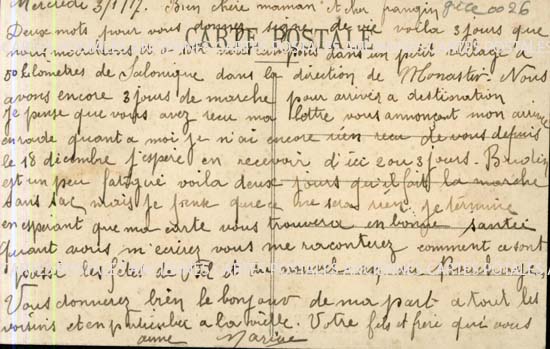 Mercredi 3/1/17. Bien chère maman et cher
Deux mots pour vous donner signe de vie voila 3 jours que
CARTE POSTALE
nous dans un petit village a
50 kilometres de Salonique dans la direction de Monastir. Nous
avons encore 3 jours de marche pour arriver a destination
je pense que vous avez recu ma lettre vous annonçant mon arrivée
en rade quant a moi je n'ai encore rien recu de vous depuis
le 18 dicembre j'espère en recevoir d'ici 2 ou 3 jours.
est un peu fatigué voila deux jours qu'il fait la marche
sans sac mais je pense que ce ne sera rien je termine
en esperant que ma carte vous trouvera en bonne santée
Quant avous m'ecirez vous me raconterez comment ce sont
passé les fêtes de et
Vous donnerez bien le bonjour de ma part a tout les
voisins et en particulier a la vieille. Votre fils et frère qui vous
aime